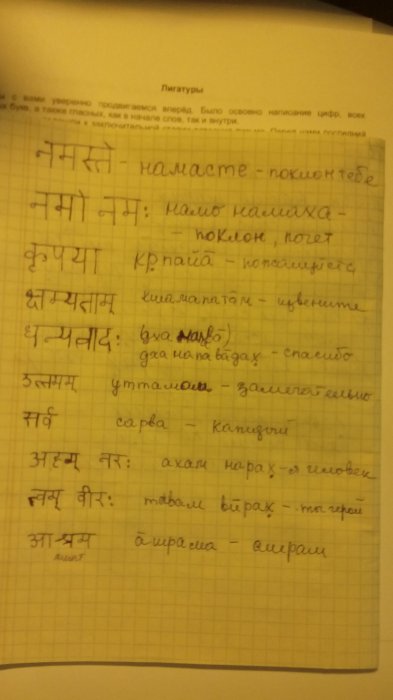 Лигатуры
с вами уверенно продвигаемся вперёд. Было освоено написание цифр, всех
букв, а также гласных, как в начале слов, так и внутри.
नमस्ते - намасте - поклон тебе
नमो नमः намо намаха -
- поклон, почет
कृपया кр̣пайа̄ -
क्षम्यताम् - извените
धन्यवादः (дха
- спасибо
उत्तमम् уттамам - замечательно
सर्व сарва - каждый
अहम् नरः ахам нарах̣ - я человек
त्वम् वीरः твам вӣрах̣ - ты герой
आश्रम а̄шрама - ашрам